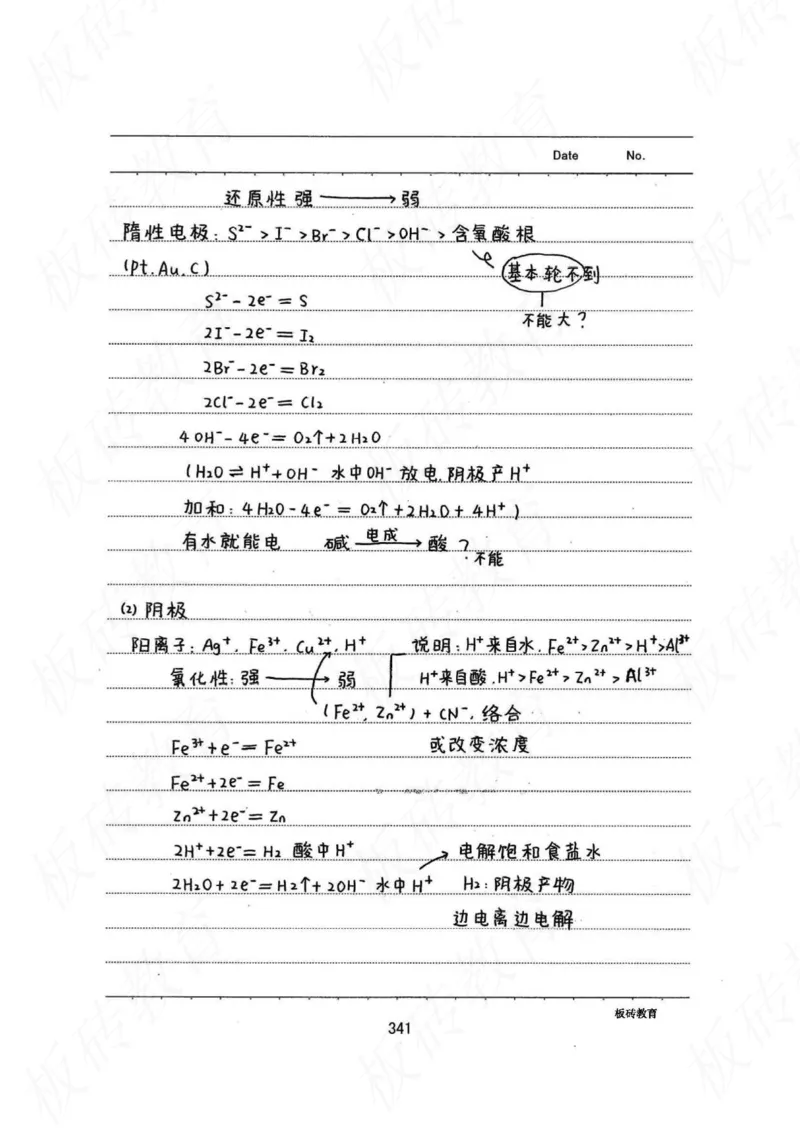 Date No.
还原性 强 ⟶ 弱
隋性电极: S²⁻ > I⁻ > Br⁻ > Cl⁻ > OH⁻ > 含氧酸根
(Pt. Au. C)
基本轮不到
S²⁻ - 2e⁻ = S
不能大?
2I⁻ - 2e⁻ = I₂
2Br⁻ - 2e⁻ = Br₂
2Cl⁻ - 2e⁻ = Cl₂
4OH⁻ - 4e⁻ = O₂↑ + 2H₂O
(H₂O ⇌ H⁺ + OH⁻ 水中OH⁻ 放电. 阴极产H⁺
加和: 4H₂O - 4e⁻ = O₂↑ + 2H₂O + 4H⁺ )
有水就能电 碱 电成⟶ 酸 ? 不能
(2) 阴极
阳离子: Ag⁺. Fe³⁺. Cu²⁺. H⁺ 说明: H⁺来自水. Fe²⁺>Zn²⁺>H⁺>Al³⁺
氧化性: 强 ⟶ 弱 H⁺来自酸. H⁺>Fe²⁺>Zn²⁺>Al³⁺
(Fe²⁺, Zn²⁺) + CN⁻. 络合
Fe³⁺ + e⁻ = Fe²⁺ 或改变浓度
Fe²⁺ + 2e⁻ = Fe
Zn²⁺ + 2e⁻ = Zn
2H⁺ + 2e⁻ = H₂ 酸中H⁺ 电解饱和食盐水
2H₂O + 2e⁻ = H₂↑ + 2OH⁻ 水中H⁺ H₂: 阴极产物
边电离边电解
板砖教育
341